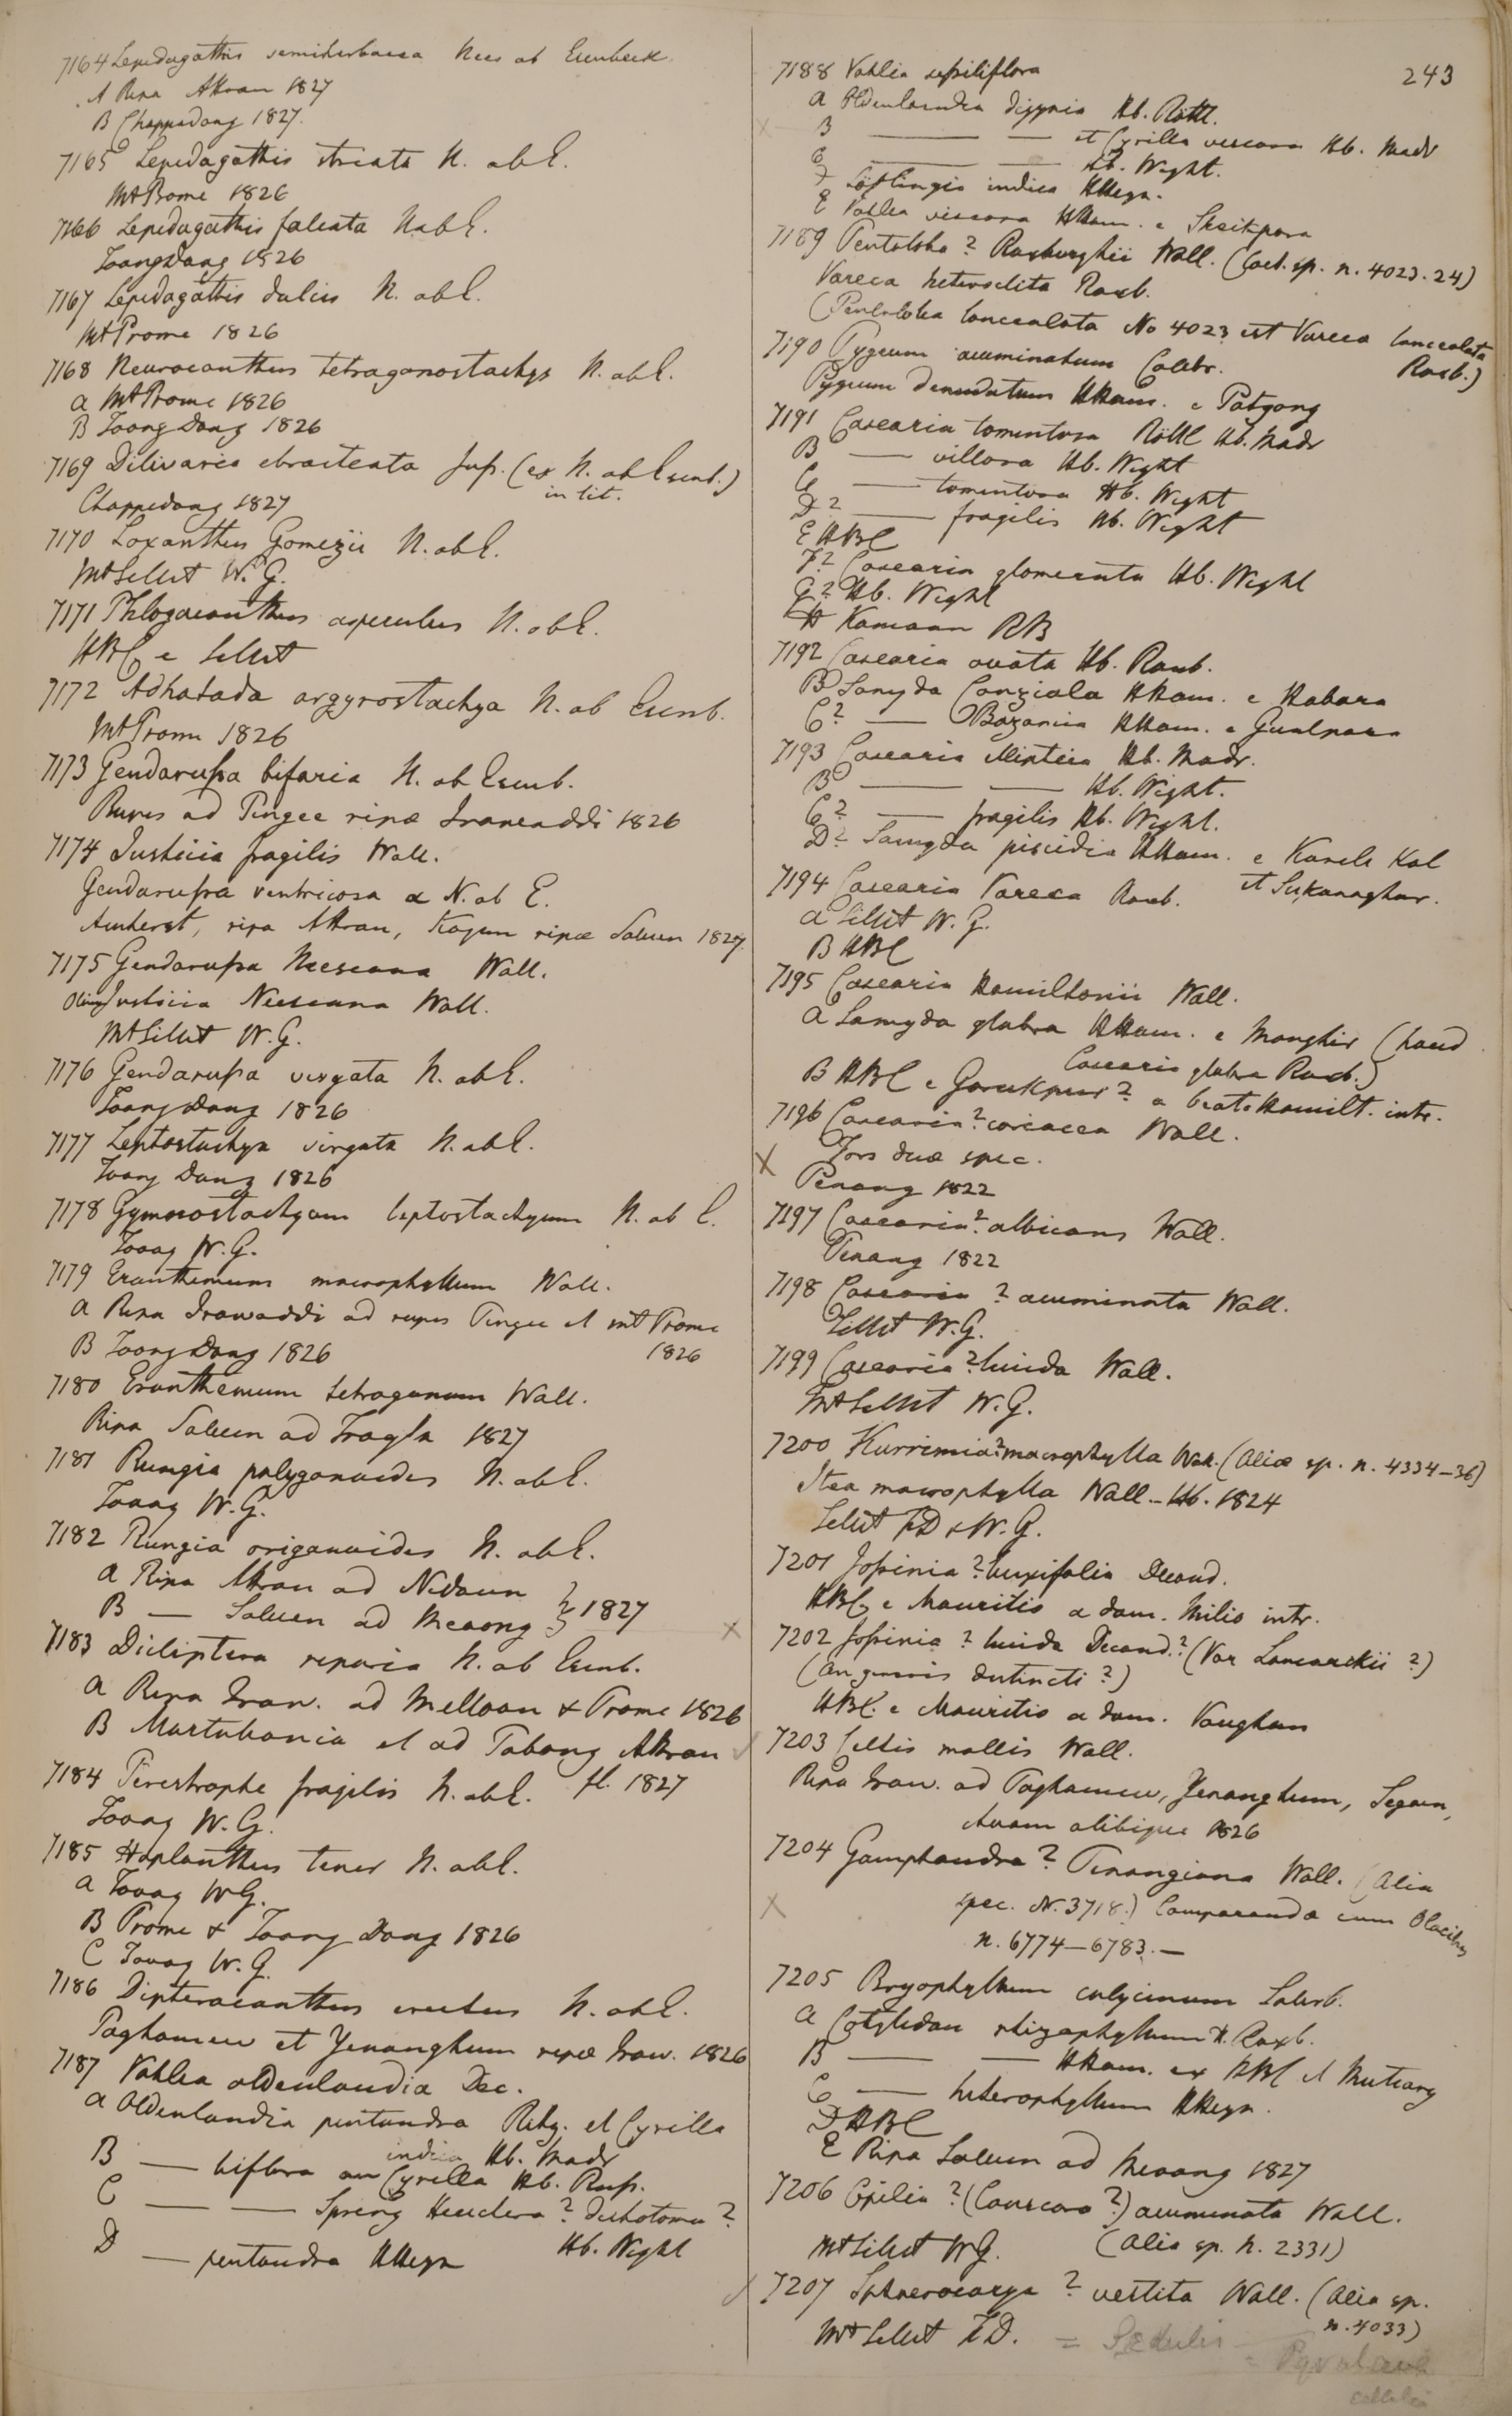 7164 Lepidagathis semiherbacea Nees ab Esenbeck
A Ripa Attran 1827
B Chappedong 1827.
7165 Lepidagathis striata N. ab E.
Mt Prome 1826
7166 Lepidagathis falcata N ab E.
Toong Dong 1826
7167 Lepidagathis dulcis N. ab E.
Mt Prome 1826
7168 Neuracanthus tetragonostachys N. ab E.
a Mt Prome 1826
B Toong Dong 1826
7169 Dilivaria ebracteata Juss. (ex N. ab Esenb.)
in lit.
Chappedong 1827
7170 Loxanthus Gomezii N. ab E.
Mt Sillet W. G.
7171 Phlogacanthus asperulus N. ab E.
HBC e Sillet
7172 Adhatoda argyrostachya N. ab Esenb.
Mt Prome 1826
7173 Gendarussa bifaria N. ab Esenb.
Rupes ad Pingee ripæ Irawaddi 1826
7174 Justicia fragilis Wall.
Gendarussa ventricosa α N. ab E.
Amherst, ripa Attran, Kogun ripæ Saluen 1827.
7175 Gendarussa Neesiana Wall.
Olim Justicia Neesiana Wall.
Mt Sillet W. G.
7176 Gendarussa virgata N. ab E.
Toong Dong 1826
7177 Leptostachya virgata N. ab E.
Toong Dong 1826
7178 Gymnostachyum leptostachyum N. ab E.
Tavoy W. G.
7179 Eranthemum macrophyllum Wall.
a Ripa Irawaddi ad rupes Pingee et mt Prome
1826
B Toong Dong 1826
7180 Eranthemum tetragonum Wall.
Ripa Saluen ad Trogla 1827
7181 Rungia polygonoides N. ab E.
Tavoy W. G.
7182 Rungia origanoides N. ab E.
a Ripa Attran ad Nidaun
B — Saluen ad Meaong } 1827
7183 Dicliptera riparia N. ab Esenb.
a Ripa Iraw. ad Melloon & Prome 1826
B Martabania et ad Tabong Attran
fl. 1827
7184 Peristrophe fragilis N. ab E.
Tavoy W. G.
7185 Haplanthus tener N. ab E.
a Tavoy W G.
B Prome & Toong Dong 1826
C Tavoy W. G.
7186 Dipteracanthus erectus N. ab E.
Paghamew et Yenanghum ripæ Iraw. 1826
7187 Vahlia oldenlandia Dec.
a Oldenlandia pentandra Retz. et Cyrilla
indica Hb. Madr
B — biflora an Cyrilla Hb. Russ.
C — — Spreng Heuchera? dichotoma?
Hb. Wight
D — pentandra HHeyn
243
7188 Vahlia sessiliflora
a Oldenlandia digynia Hb. Rottl.
B — — et Cyrilla viscosa Hb. Madr
C — — Hb. Wight.
D Löflingia indica HHeyn.
E Vahlia viscosa HHam. e Sheikpora
7189 Pentaloba? Roxburghii Wall. (Caet. sp. n. 4023. 24)
Vareca heteroclita Roxb.
(Pentaloba lanceolata No 4023 est Vareca lanceolata
Roxb.)
7190 Pygeum acuminatum Colebr.
Pygeum denudatum HHam. e Patgong
7191 Casearia tomentosa Röttl Hb. Madr
B — villosa Hb. Wight
C — tomentosa Hb. Wight
D? — fragilis Hb. Wight
E HBC
F? Casearia glomerata Hb. Wight
G? Hb. Wight
H Kamaon RB
7192 Casearia ovata Hb. Roxb.
B Samyda Canziala HHam. e Habara
C? — Bazarica HHam. e Gualpara
7193 Casearia elliptica Hb. Madr.
B — — Hb. Wight.
C? — fragilis Hb. Wight.
D? Samyda piscidia HHam. e Karele Kol
et Sukanaghur.
7194 Casearia Vareca Roxb.
a Sillet W. G.
B HBC
7195 Casearia Hamiltonii Wall.
a Samyda glabra HHam. e Monghir (haud
Casearia glabra Roxb.)
B HBC e Gorukpur? a beato Hamilt. intr.
7196 Casearia? coriacea Wall.
X Fors duæ spec.
Penang 1822
7197 Casearia? albicans Wall.
Penang 1822
7198 Casearia? acuminata Wall.
Sillet W. G.
7199 Casearia? lucida Wall.
Mt Sillet W. G.
7200 Kurrimia? macrophylla Wall. (Aliæ sp. n. 4334–36)
Itea macrophylla Wall. – Hb. 1824
Sillet FD & W. G.
7201 Jossinia? buxifolia Decand.
HBC e Mauritio a dom. Milio intr.
X 7202 Jossinia? lucida Decand.? (Var Lamarckii?)
(an generis distincti?)
HBC. e Mauritio a dom. Vaughan
7203 Celtis mollis Wall.
Ripa Iraw. ad Paghamew, Yenanghum, Segaen,
Avam alibique 1826
7204 Gomphandra? Penangiana Wall. (Alia
X spec. N. 3718.) Comparanda cum Olacibus
n. 6774–6783. —
7205 Bryophyllum calycinum Salisb.
a Cotyledon rhizophyllum H. Roxb.
B — — HHam. ex HBC et Mutiary
C — heterophyllum HHeyn.
D HBC
E Ripa Saluen ad Meaong 1827
7206 Opilia? (Cansjera?) acuminata Wall.
Mt Sillet WG. (Alia sp. N. 2331)
7207 Sphaerocarya? vestita Wall. (Alia sp.
n. 4033)
Mt Sillet FD. = S. edulis
= Pyrularia
edulis